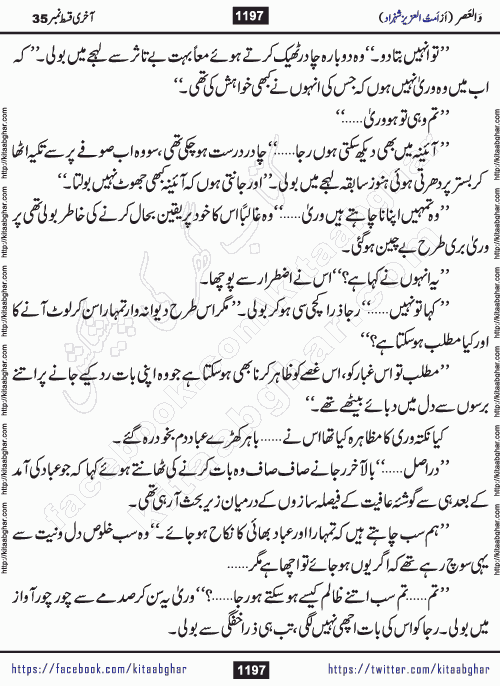 وَالعَصر (اَز اَمتُ العزیز شہزاد) 1197 آخری قسط نمبر 35
’’تو انہیں بتا دو۔‘‘ وہ دوبارہ چادر ٹھیک کرتے ہوئے معاً بہت بے تاثر سے لہجے میں بولی۔ ’’کہ
اب میں وہ وریٰ نہیں ہوں کہ جس کی انہوں نے کبھی خواہش کی تھی۔‘‘
’’تم وہی تو ہو وریٰ......‘‘
’’آئینہ میں بھی دیکھ سکتی ہوں رجا......‘‘ چادر درست ہو چکی تھی، سو وہ اب صوفے پر سے تکیہ اٹھا
کر بستر پر دھرتی ہوئی ہنوز سابقہ لہجے میں بولی۔ ’’اور جانتی ہوں کہ آئینہ بھی جھوٹ نہیں بولتا۔‘‘
’’وہ تمہیں اپنانا چاہتے ہیں وریٰ......‘‘ وہ غالباً اس کا خود پر یقین بحال کرنے کی خاطر بولی تھی پر
وریٰ بری طرح بے چین ہو گئی۔
’’یہ انہوں نے کہا ہے؟‘‘ اس نے اضطرار سے پوچھا۔
’’کہا تو نہیں......‘‘ رجا ذرا کچی سی ہو کر بولی۔ ’’مگر اس طرح دیوانہ وار تمہارا سن کر لوٹ آنے کا
اور کیا مطلب ہو سکتا ہے؟‘‘
’’مطلب تو اس غبار کو، اس غصے کو ظاہر کرنا بھی ہو سکتا ہے جو وہ اپنی بات رد کیے جانے پر اتنے
برسوں سے دل میں دبائے بیٹھے تھے۔‘‘
کیا نکتہ وری کا مظاہرہ کیا تھا اس نے...... باہر کھڑے عباد دم بخود رہ گئے۔
’’دراصل......‘‘ بالآخر رجا نے صاف صاف وہ بات کرنے کی ٹھانتے ہوئے کہا کہ جو عباد کی آمد
کے بعد ہی سے گوشئہ عافیت کے فیصلہ سازوں کے درمیان زیر بحث آ رہی تھی۔
’’ہم سب چاہتے ہیں کہ تمہارا اور عباد بھائی کا نکاح ہو جائے۔‘‘ وہ سب خلوص دل و نیت سے
یہی سوچ رہے تھے کہ اگر یوں ہو جائے تو اچھا ہے مگر......
’’تم...... تم سب اتنے ظالم کیسے ہو سکتے ہو رجا......؟‘‘ وریٰ یہ سن کر صدمے سے چور چور آواز
میں بولی۔ رجا کو اس کی بات اچھی نہیں لگی، تب ہی ذرا خفگی سے بولی۔
https://facebook.com/kitaabghar 1197 https://twitter.com/kitaabghar
http://kitaabghar.com http://kitaabghar.com http://kitaabghar.com http://kitaabghar.com http://kitaabghar.com http://kitaabghar.com
http://kitaabghar.com http://kitaabghar.com http://kitaabghar.com http://kitaabghar.com http://kitaabghar.com http://kitaabghar.com
کتاب گھر کی پیشکش
kitaabghar.com
facebook.com/kitaabghar